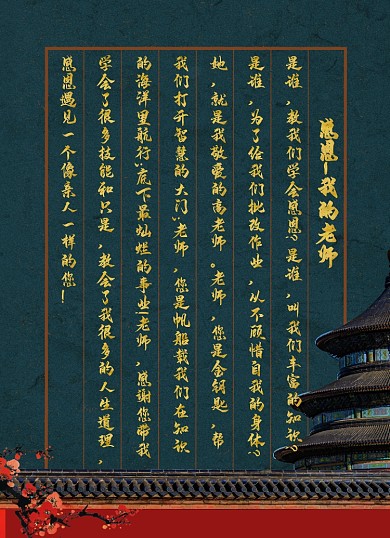 感恩—我的老师
是谁，教我们学会感恩？是谁，叫我们丰富的知识？
是谁，为了给我们批改作业，从不顾惜自我的身体？
她，就是我敬爱的高老师。老师，您是金钥匙，帮
我们打开智慧的大门；老师，您是帆船载我们在知识
的海洋里航行；底下最灿烂的事业！老师，感谢您带我
学会了很多技能和只是，教会了我很多的人生道理，
感恩遇见一个像亲人一样的您！